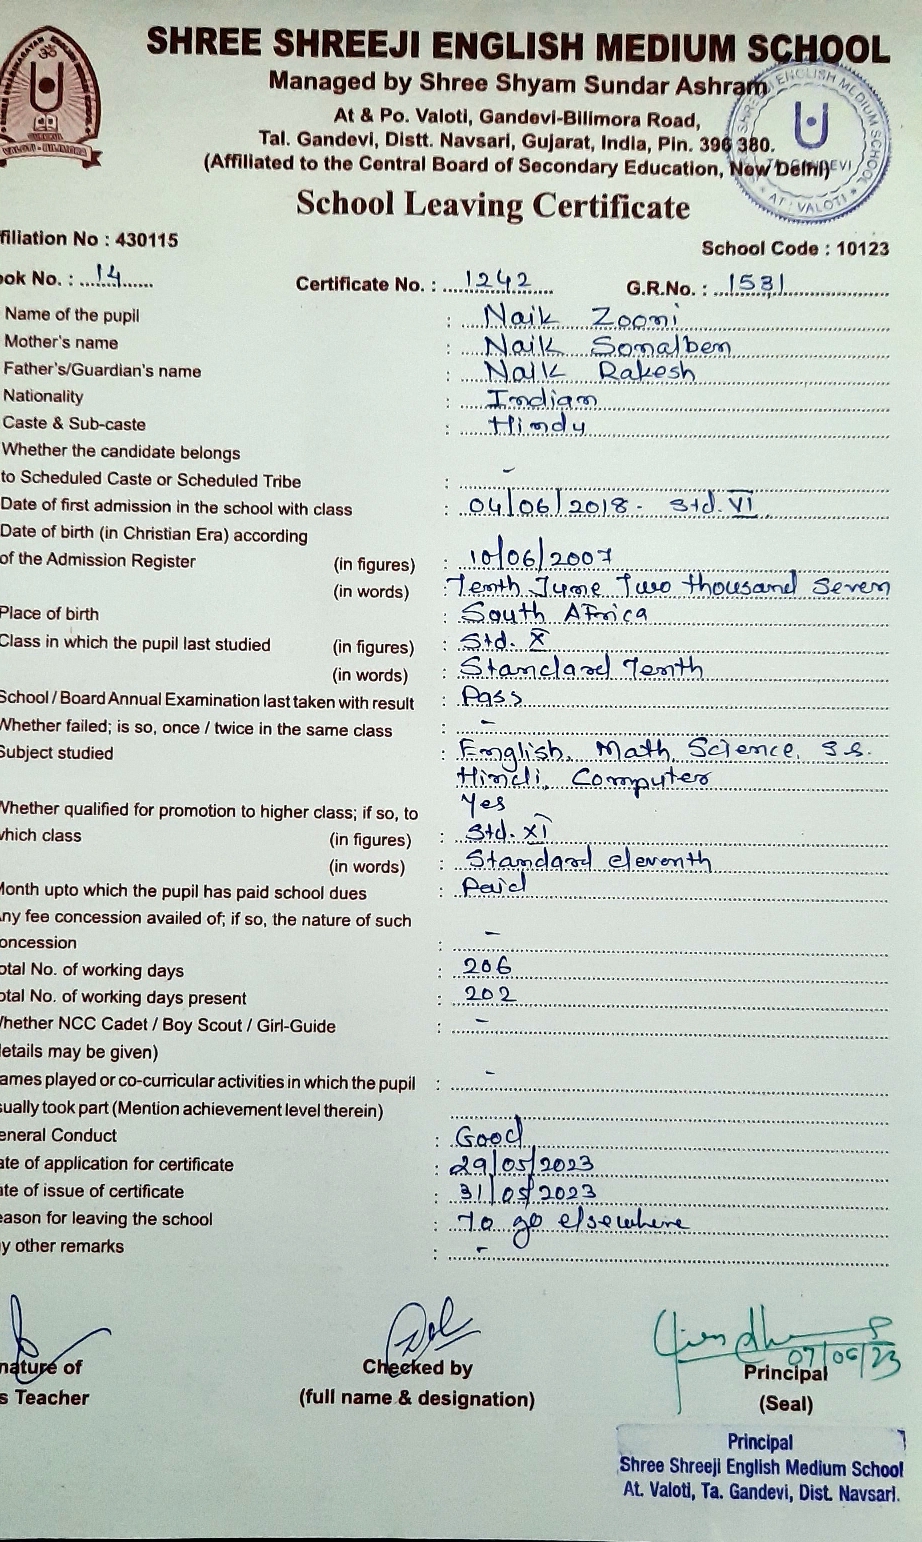 SHREE SHREEJI ENGLISH MEDIUM SCHOOL
Managed by Shree Shyam Sundar Ashram
At & Po. Valoti, Gandevi-Bilimora Road,
Tal. Gandevi, Distt. Navsari, Gujarat, India, Pin. 396 380.
(Affiliated to the Central Board of Secondary Education, New Delhi)
VALOTI - BILIMORA
SHREE SHREEJI ENGLISH MEDIUM SCHOOL
TA. GANDEVI
AT : VALOTI
School Leaving Certificate
filiation No : 430115
School Code : 10123
ook No. : 14 Certificate No. : 1242 G.R.No. : 1531
Name of the pupil : Naik Zooni
Mother's name : Naik Sonalben
Father's/Guardian's name : Naik Rakesh
Nationality : Indian
Caste & Sub-caste : Hindu
Whether the candidate belongs
to Scheduled Caste or Scheduled Tribe : -
Date of first admission in the school with class : 04/06/2018 - Std. VI
Date of birth (in Christian Era) according
of the Admission Register (in figures) : 10/06/2007
(in words) : Tenth June Two thousand Seven
Place of birth : South Africa
Class in which the pupil last studied (in figures) : Std. X
(in words) : Standard Tenth
School / Board Annual Examination last taken with result : Pass
Whether failed; is so, once / twice in the same class : -
Subject studied : English, Math, Science, S.S.
Hindi, Computer
Whether qualified for promotion to higher class; if so, to Yes
which class (in figures) : Std. XI
(in words) : Standard eleventh
Month upto which the pupil has paid school dues : Paid
Any fee concession availed of; if so, the nature of such
oncession : -
otal No. of working days : 206
otal No. of working days present : 202
Whether NCC Cadet / Boy Scout / Girl-Guide : -
etails may be given)
ames played or co-curricular activities in which the pupil : -
sually took part (Mention achievement level therein)
eneral Conduct : Good
ate of application for certificate : 29/05/2023
ate of issue of certificate : 31/05/2023
eason for leaving the school : To go elsewhere
y other remarks : -
07/06/23
nature of Checked by Principal
s Teacher (full name & designation) (Seal)
Principal
Shree Shreeji English Medium School
At. Valoti, Ta. Gandevi, Dist. Navsari.